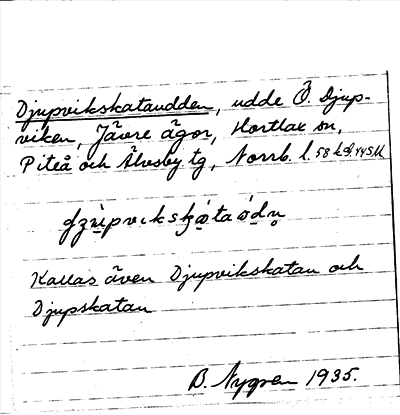 Djupvikskataudden, udde Ö. Djup-
viken, Jävre ägor, Hortlax sn,
Piteå och Älvsby tg, Norrb. l. 58
Kallas även Djupvikskatan och
Djupskatan
B. Nygren 1935.